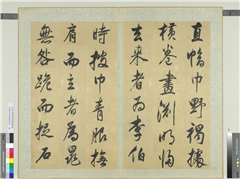 直幅巾野褐據
橫卷畫淵明歸
去來者為李伯
時披巾青服撫
肩而立者為晁
無咎跪而捉石